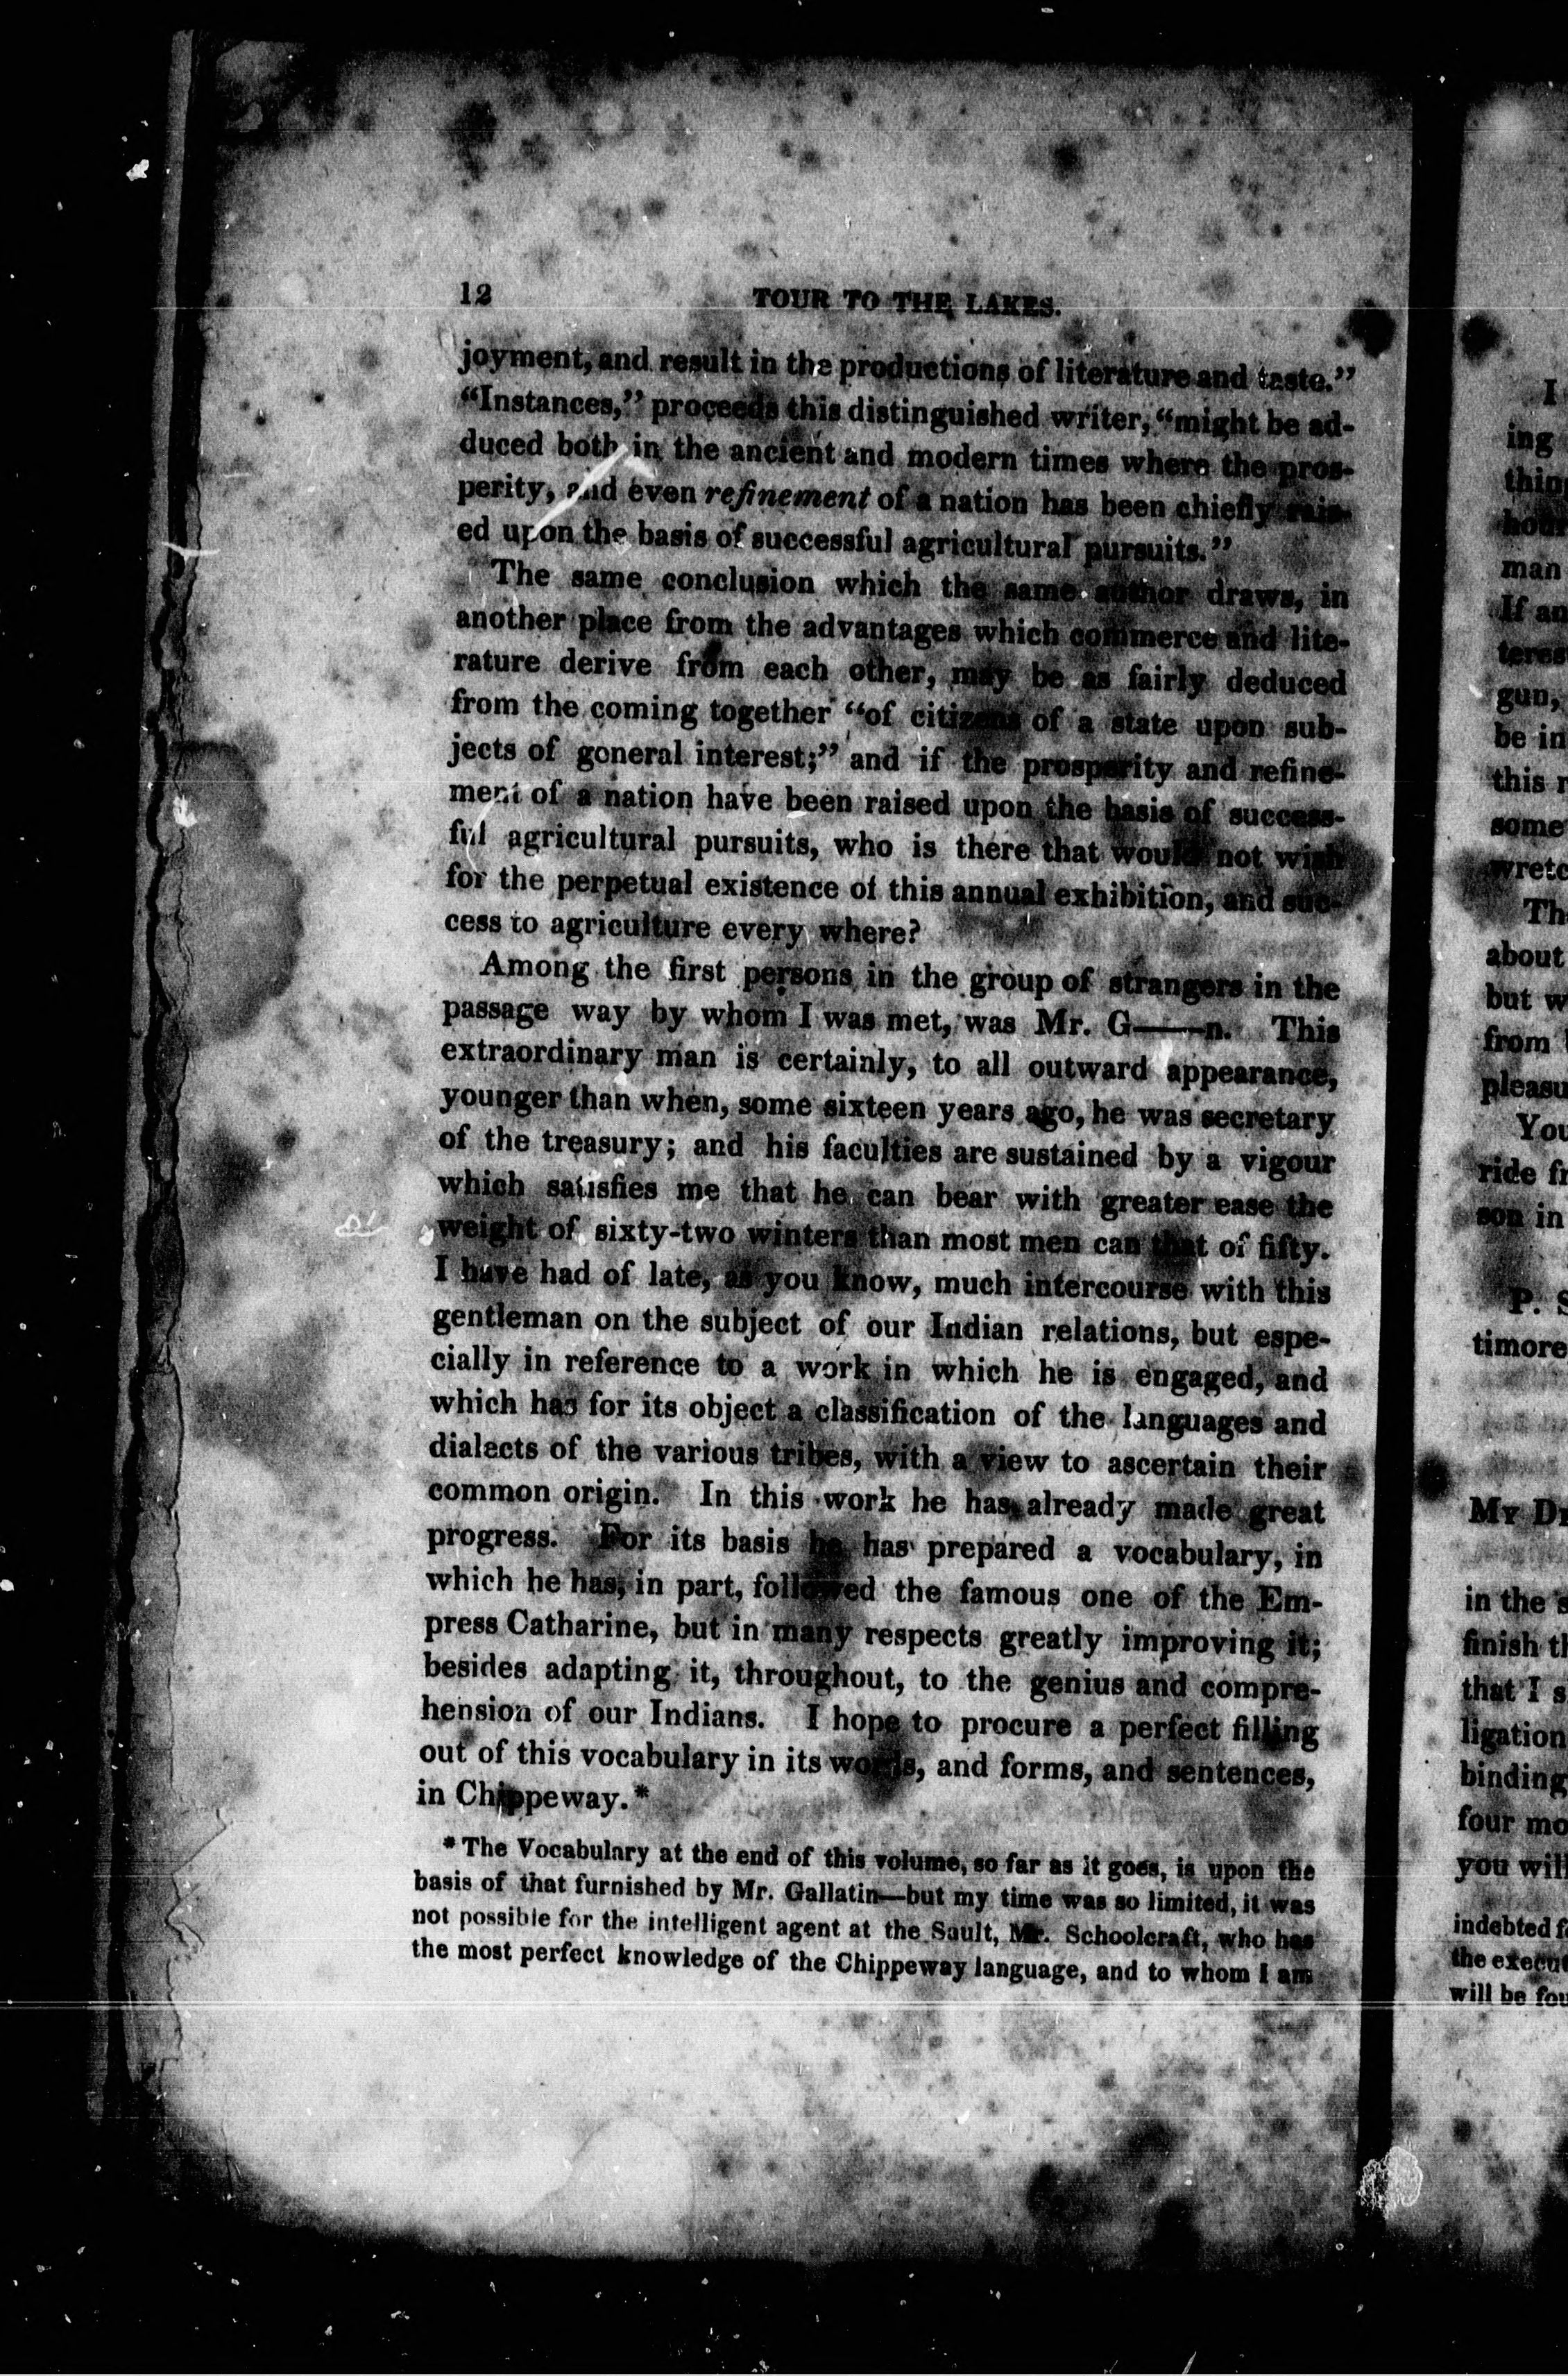 12 TOUR TO THE LAKES.
joyment, and result in the productions of literature and taste."
"Instances," proceeds this distinguished writer, "might be ad-
duced both in the ancient and modern times where the pros-
perity, and even refinement of a nation has been chiefly rais-
ed upon the basis of successful agricultural pursuits."
The same conclusion which the same author draws, in
another place from the advantages which commerce and lite-
rature derive from each other, may be as fairly deduced
from the coming together "of citizens of a state upon sub-
jects of general interest;" and if the prosperity and refine-
ment of a nation have been raised upon the basis of success-
ful agricultural pursuits, who is there that would not wish
for the perpetual existence of this annual exhibition, and suc-
cess to agriculture every where?
Among the first persons in the group of strangers in the
passage way by whom I was met, was Mr. G——n. This
extraordinary man is certainly, to all outward appearance,
younger than when, some sixteen years ago, he was secretary
of the treasury; and his faculties are sustained by a vigour
which satisfies me that he can bear with greater ease the
weight of sixty-two winters than most men can that of fifty.
I have had of late, as you know, much intercourse with this
gentleman on the subject of our Indian relations, but espe-
cially in reference to a work in which he is engaged, and
which has for its object a classification of the languages and
dialects of the various tribes, with a view to ascertain their
common origin. In this work he has already made great
progress. For its basis he has prepared a vocabulary, in
which he has, in part, followed the famous one of the Em-
press Catharine, but in many respects greatly improving it;
besides adapting it, throughout, to the genius and compre-
hension of our Indians. I hope to procure a perfect filling
out of this vocabulary in its words, and forms, and sentences,
in Chippeway.*
* The Vocabulary at the end of this volume, so far as it goes, is upon the
basis of that furnished by Mr. Gallatin—but my time was so limited, it was
not possible for the intelligent agent at the Sault, Mr. Schoolcraft, who has
the most perfect knowledge of the Chippeway language, and to whom I am
I
ing
thin
man
If a
gun,
be in
this
some
wretc
Th
about
but w
from
pleasu
You
ride f
son in
P. S
timore
MY D
in the s
finish t
that I s
ligation
binding
four mo
you will
indebted f
the execu
will be fou